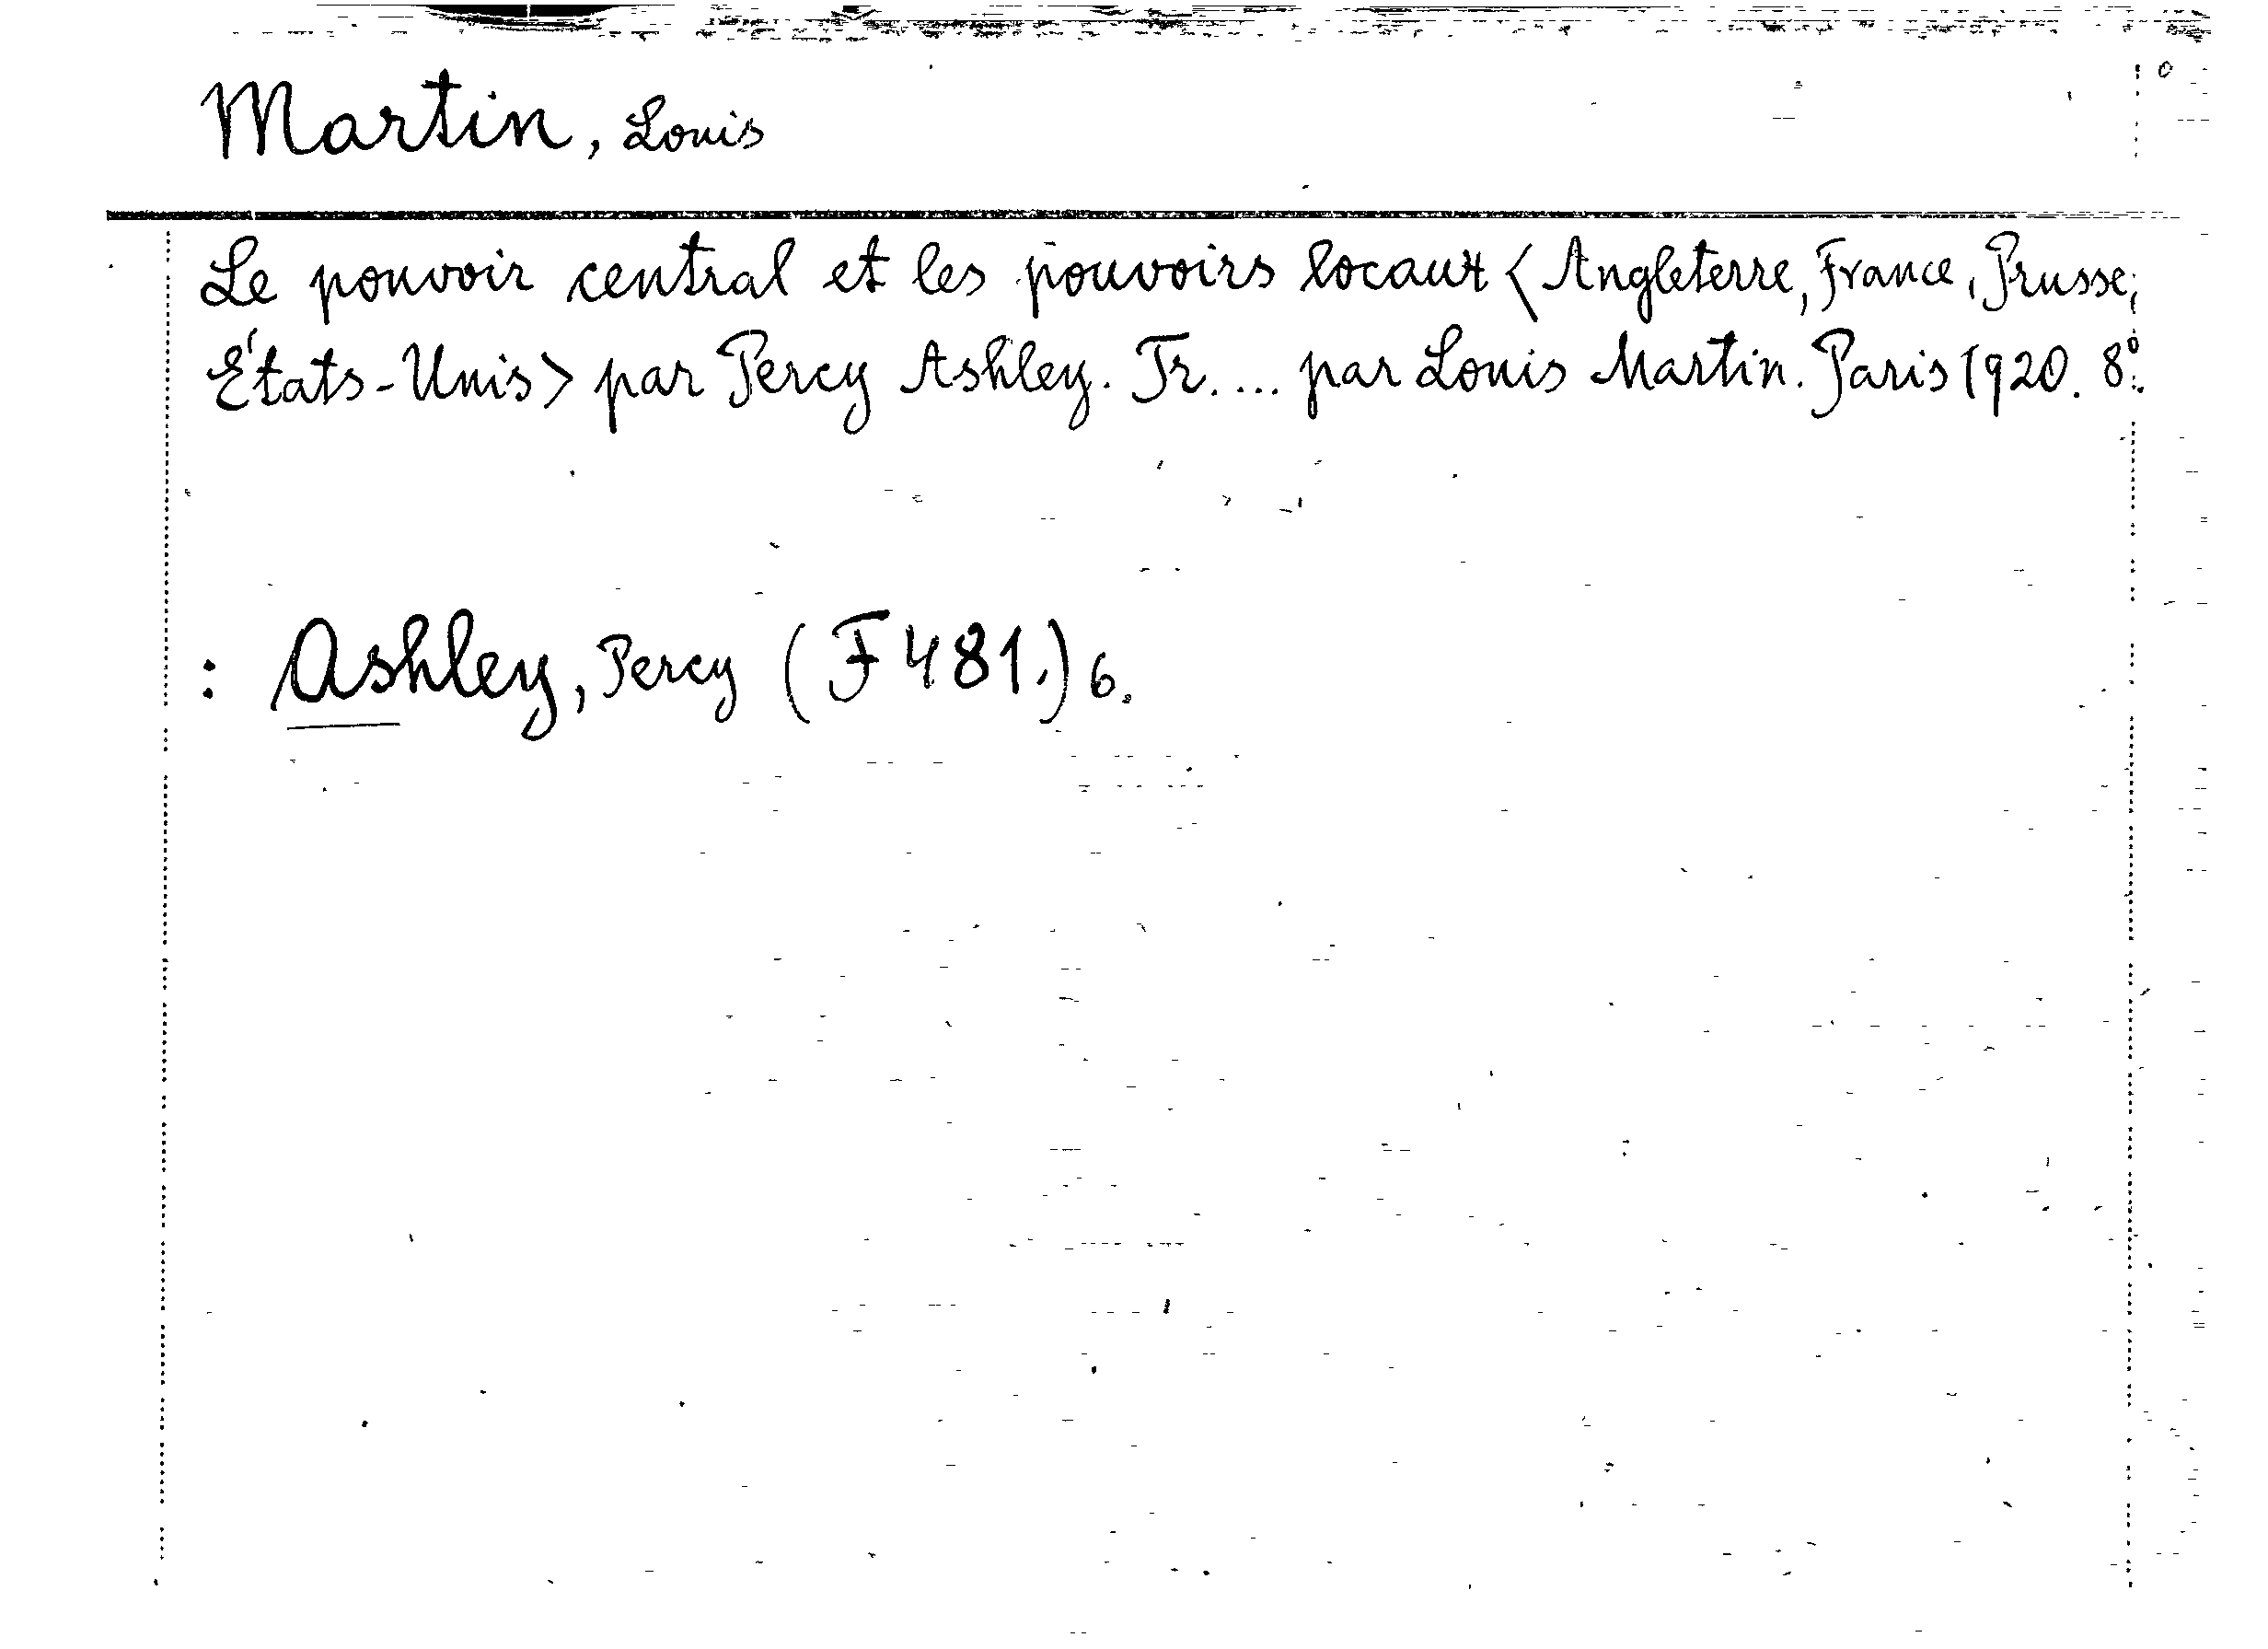 Martin, Louis
Le pouvoir central et les pouvoirs locaux <Angleterre, France, Prusse,
États-Unis> par Percy Ashley. Tr. ... par Louis Martin. Paris 1920. 8°.
: Ashley, Percy (F 481.) 6.